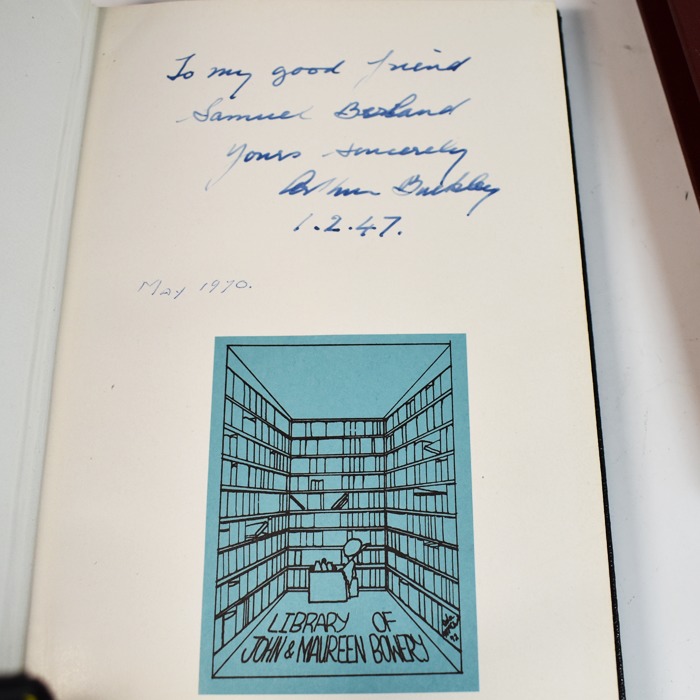 To my good friend
Samuel Berland
Yours sincerely
Arthur Buckley
1.2.47.
May 1970.
LIBRARY OF
JOHN & MAUREEN BOWERY